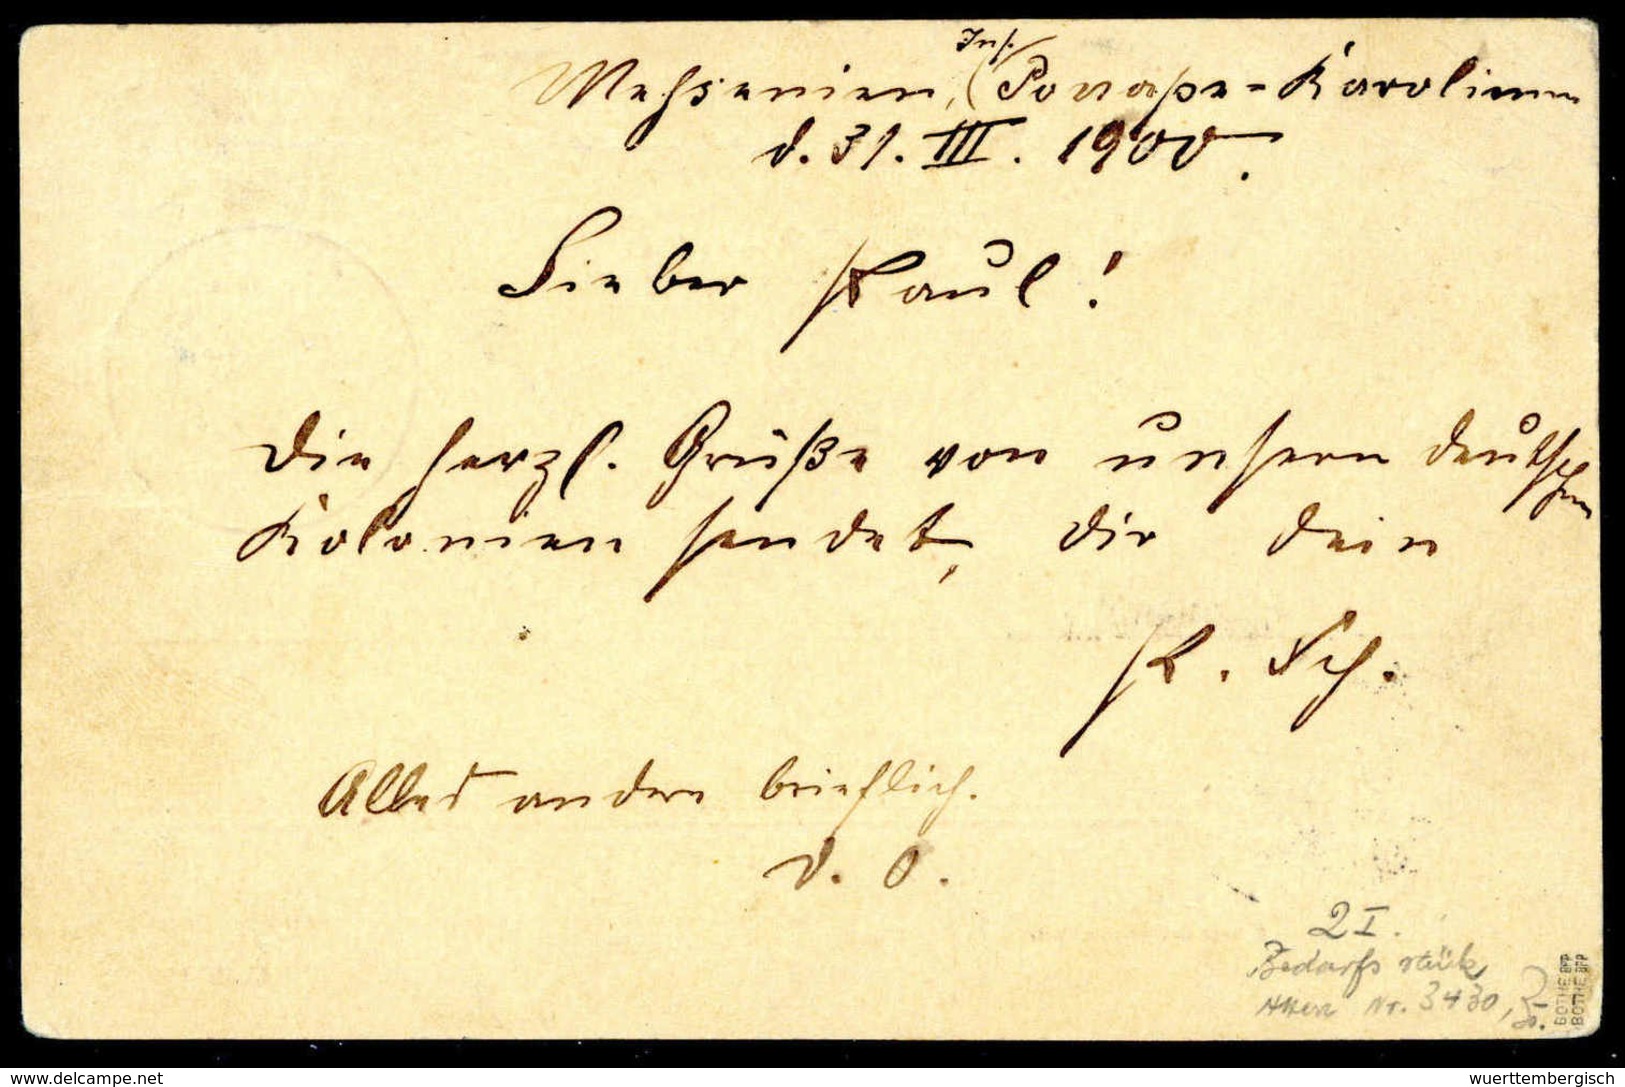 Insl.
Messenien, (Ponape-Karolinen
d. 31. III. 1900.
Lieber Paul!
Die herzl. Grüße von unsern deutschen
Kolonien sendet, dir dein
P. Sch.
Alles andere brieflich.
d. O.
2I.
Bedarfsstück
Attest Nr. 3430,
BOTHE BPP
BOTHE BPP
www.delcampe.net
wuerttembergisch